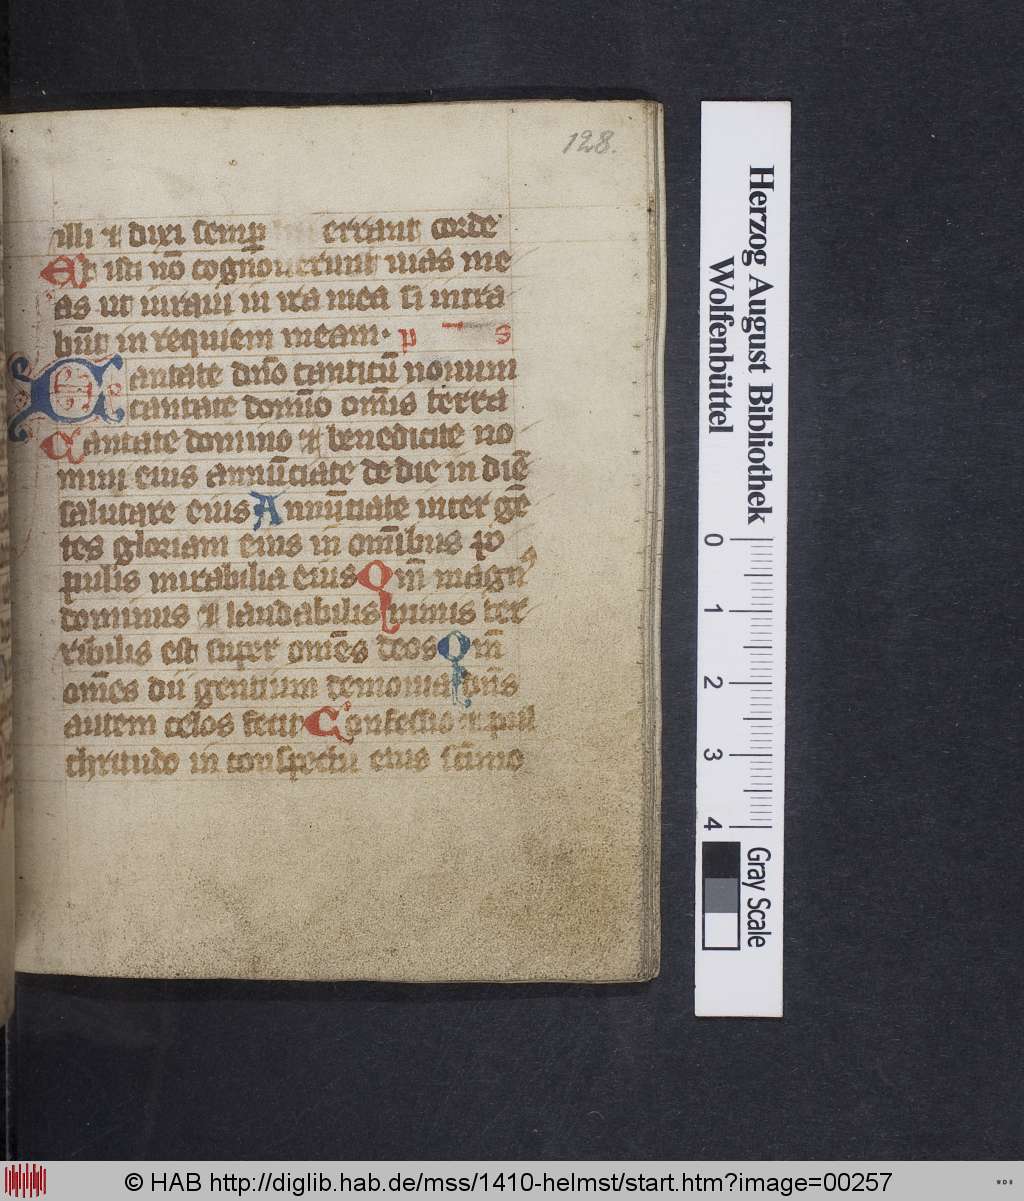 128.
illi ⁊ dixi semp errant corde
Et isti nō cognouerunt uias me
as ut iuraui in ira mea si intra
būt in requiem meam · p s
Cantate dño canticū nouum
cantate domīo om̄is terra
Cantate domino ⁊ benedicite no
mini eius annūciate de die in diē
salutare eius Annūciate inter gē
tes gloriam eius in om̄ibus po
pulis mirabilia eius Qm̄ magnꝰ
dominus ⁊ laudabilis nimis ter
ribilis est super om̄es deos Qm̄
om̄es dii gentium demonia dn̄s
autem celos fecit Confessio ⁊ pul
chritudo in conspectu eius sc̄imo
Herzog August Bibliothek
Wolfenbüttel
0 1 2 3 4
Gray Scale
© HAB http://diglib.hab.de/mss/1410-helmst/start.htm?image=00257